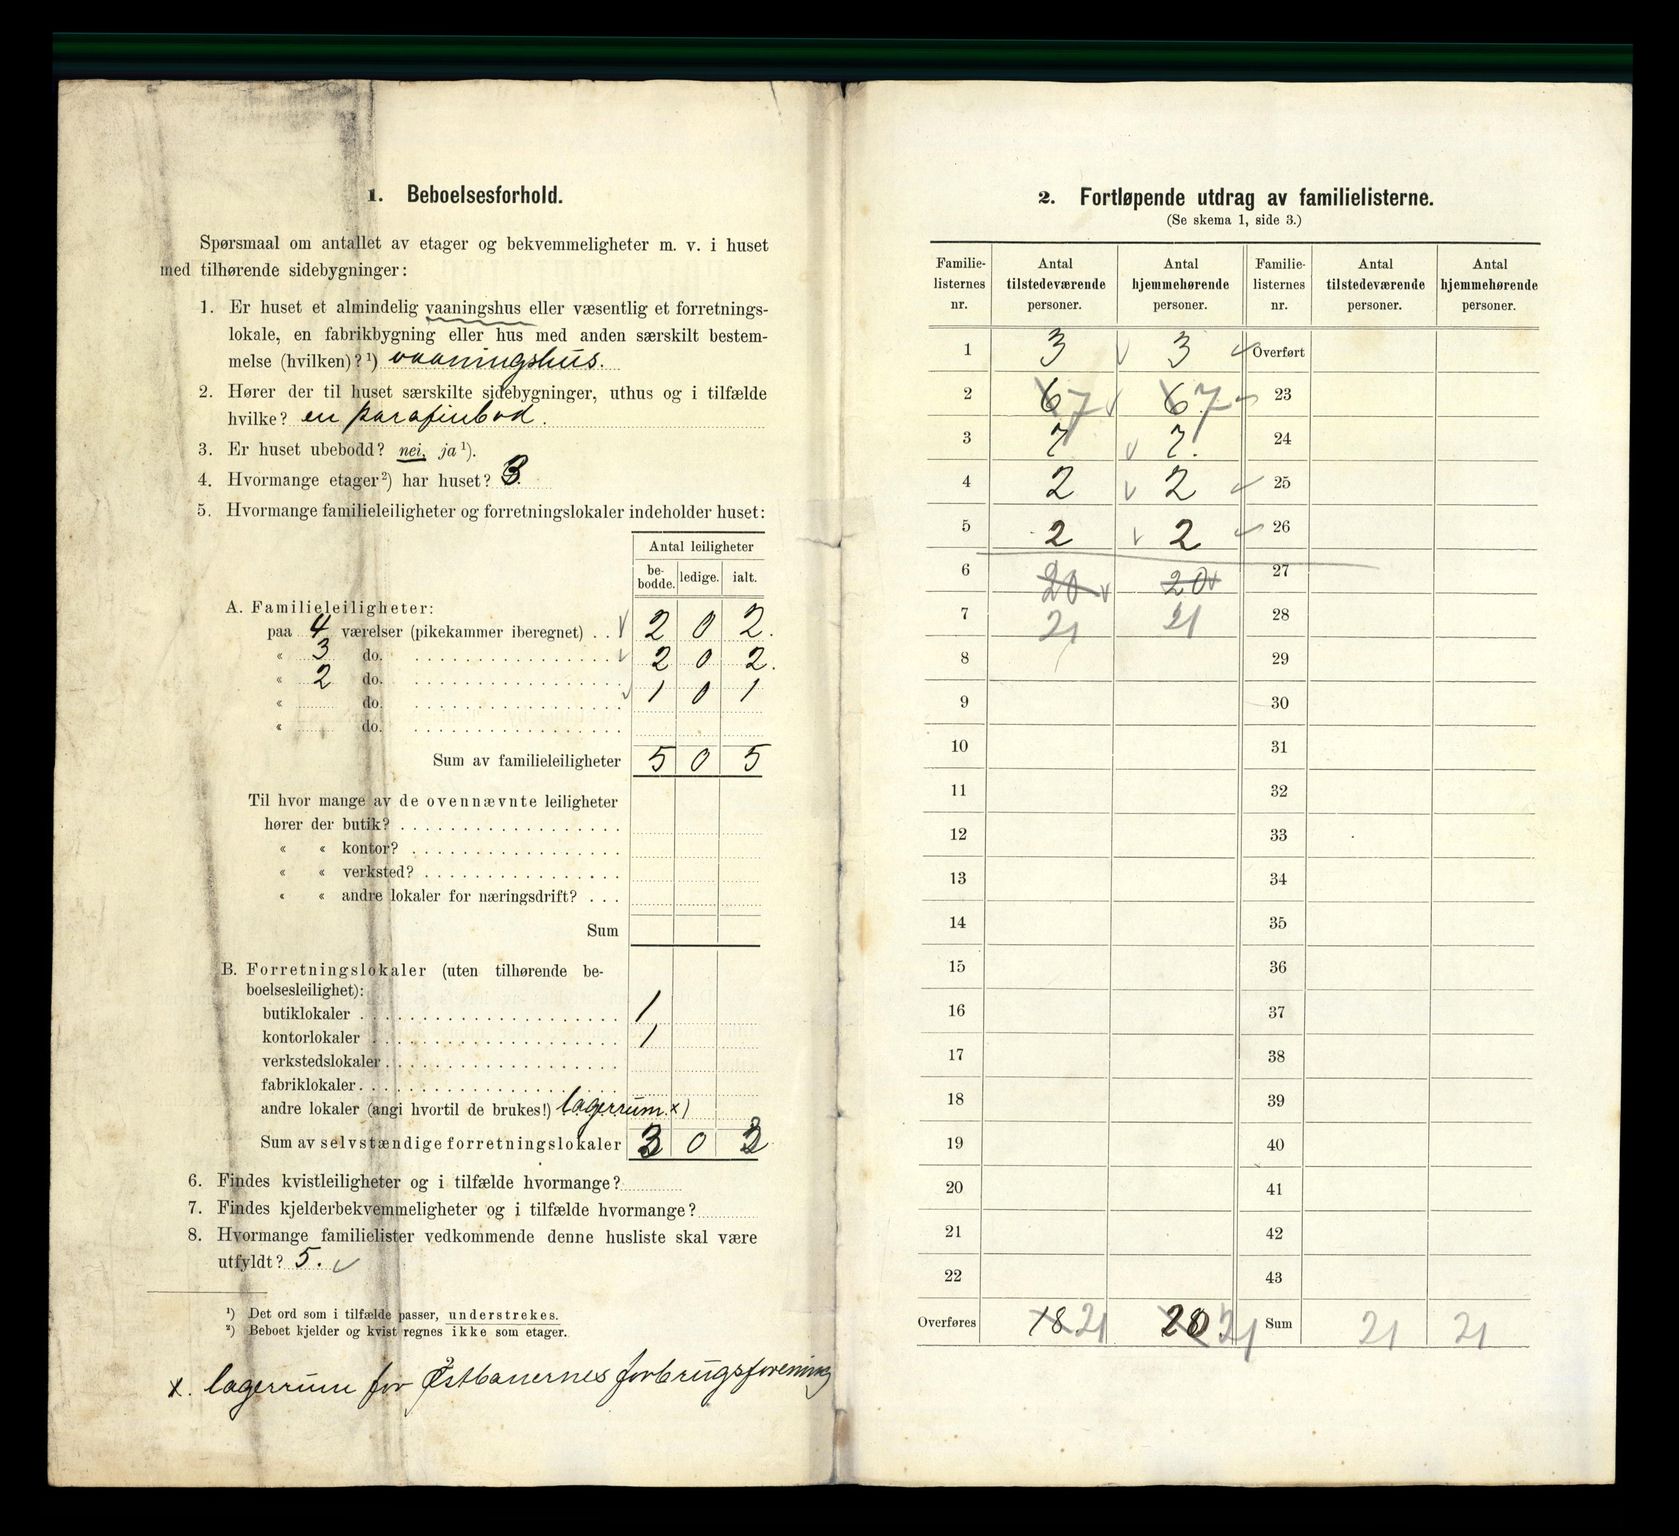 1. Beboelsesforhold.
Spørsmaal om antallet av etager og bekvemmeligheter m. v. i huset
med tilhørende sidebygninger:
1. Er huset et almindelig vaaningshus eller væsentlig et forretnings-
lokale, en fabrikbygning eller hus med anden særskilt bestem-
melse (hvilken)?¹) vaaningshus.
2. Hører der til huset særskilte sidebygninger, uthus og i tilfælde
hvilke? en parafinbod.
3. Er huset ubebodd? nei, ja ¹).
4. Hvormange etager²) har huset? 3.
5. Hvormange familieleiligheter og forretningslokaler indeholder huset:
Antal leiligheter
be-bodde. ledige. ialt.
A. Familieleiligheter:
paa 4 værelser (pikekammer iberegnet) . . 2 0 2.
« 3 do. 2 0 2.
« 2 do. 1 0 1
« do.
« do.
Sum av familieleiligheter 5 0 5
Til hvor mange av de ovennævnte leiligheter
hører der butik?
« « kontor?
« « verksted?
« « andre lokaler for næringsdrift?
Sum
B. Forretningslokaler (uten tilhørende be-
boelsesleilighet):
butiklokaler 1
kontorlokaler 1
verkstedslokaler
fabriklokaler
andre lokaler (angi hvortil de brukes!) lagerrum x)
Sum av selvstændige forretningslokaler 3 0 3
6. Findes kvistleiligheter og i tilfælde hvormange?
7. Findes kjelderbekvemmeligheter og i tilfælde hvormange?
8. Hvormange familielister vedkommende denne husliste skal være
utfyldt? 5.
¹) Det ord som i tilfælde passer, understrekes.
²) Beboet kjelder og kvist regnes ikke som etager.
x. lagerrum for Østbanernes forbrugsforening
2. Fortløpende utdrag av familielisterne.
(Se skema 1, side 3.)
Familie-listernes nr. Antal tilstedeværende personer. Antal hjemmehørende personer. Familie-listernes nr. Antal tilstedeværende personer. Antal hjemmehørende personer.
1 3 3 Overført
2 6 7 6 7 23
3 7 7. 24
4 2 2 25
5 2 2 26
6 20 20 27
7 21 21 28
8 29
9 30
10 31
11 32
12 33
13 34
14 35
15 36
16 37
17 38
18 39
19 40
20 41
21 42
22 43
Overføres 18 21 20 21 Sum 21 21